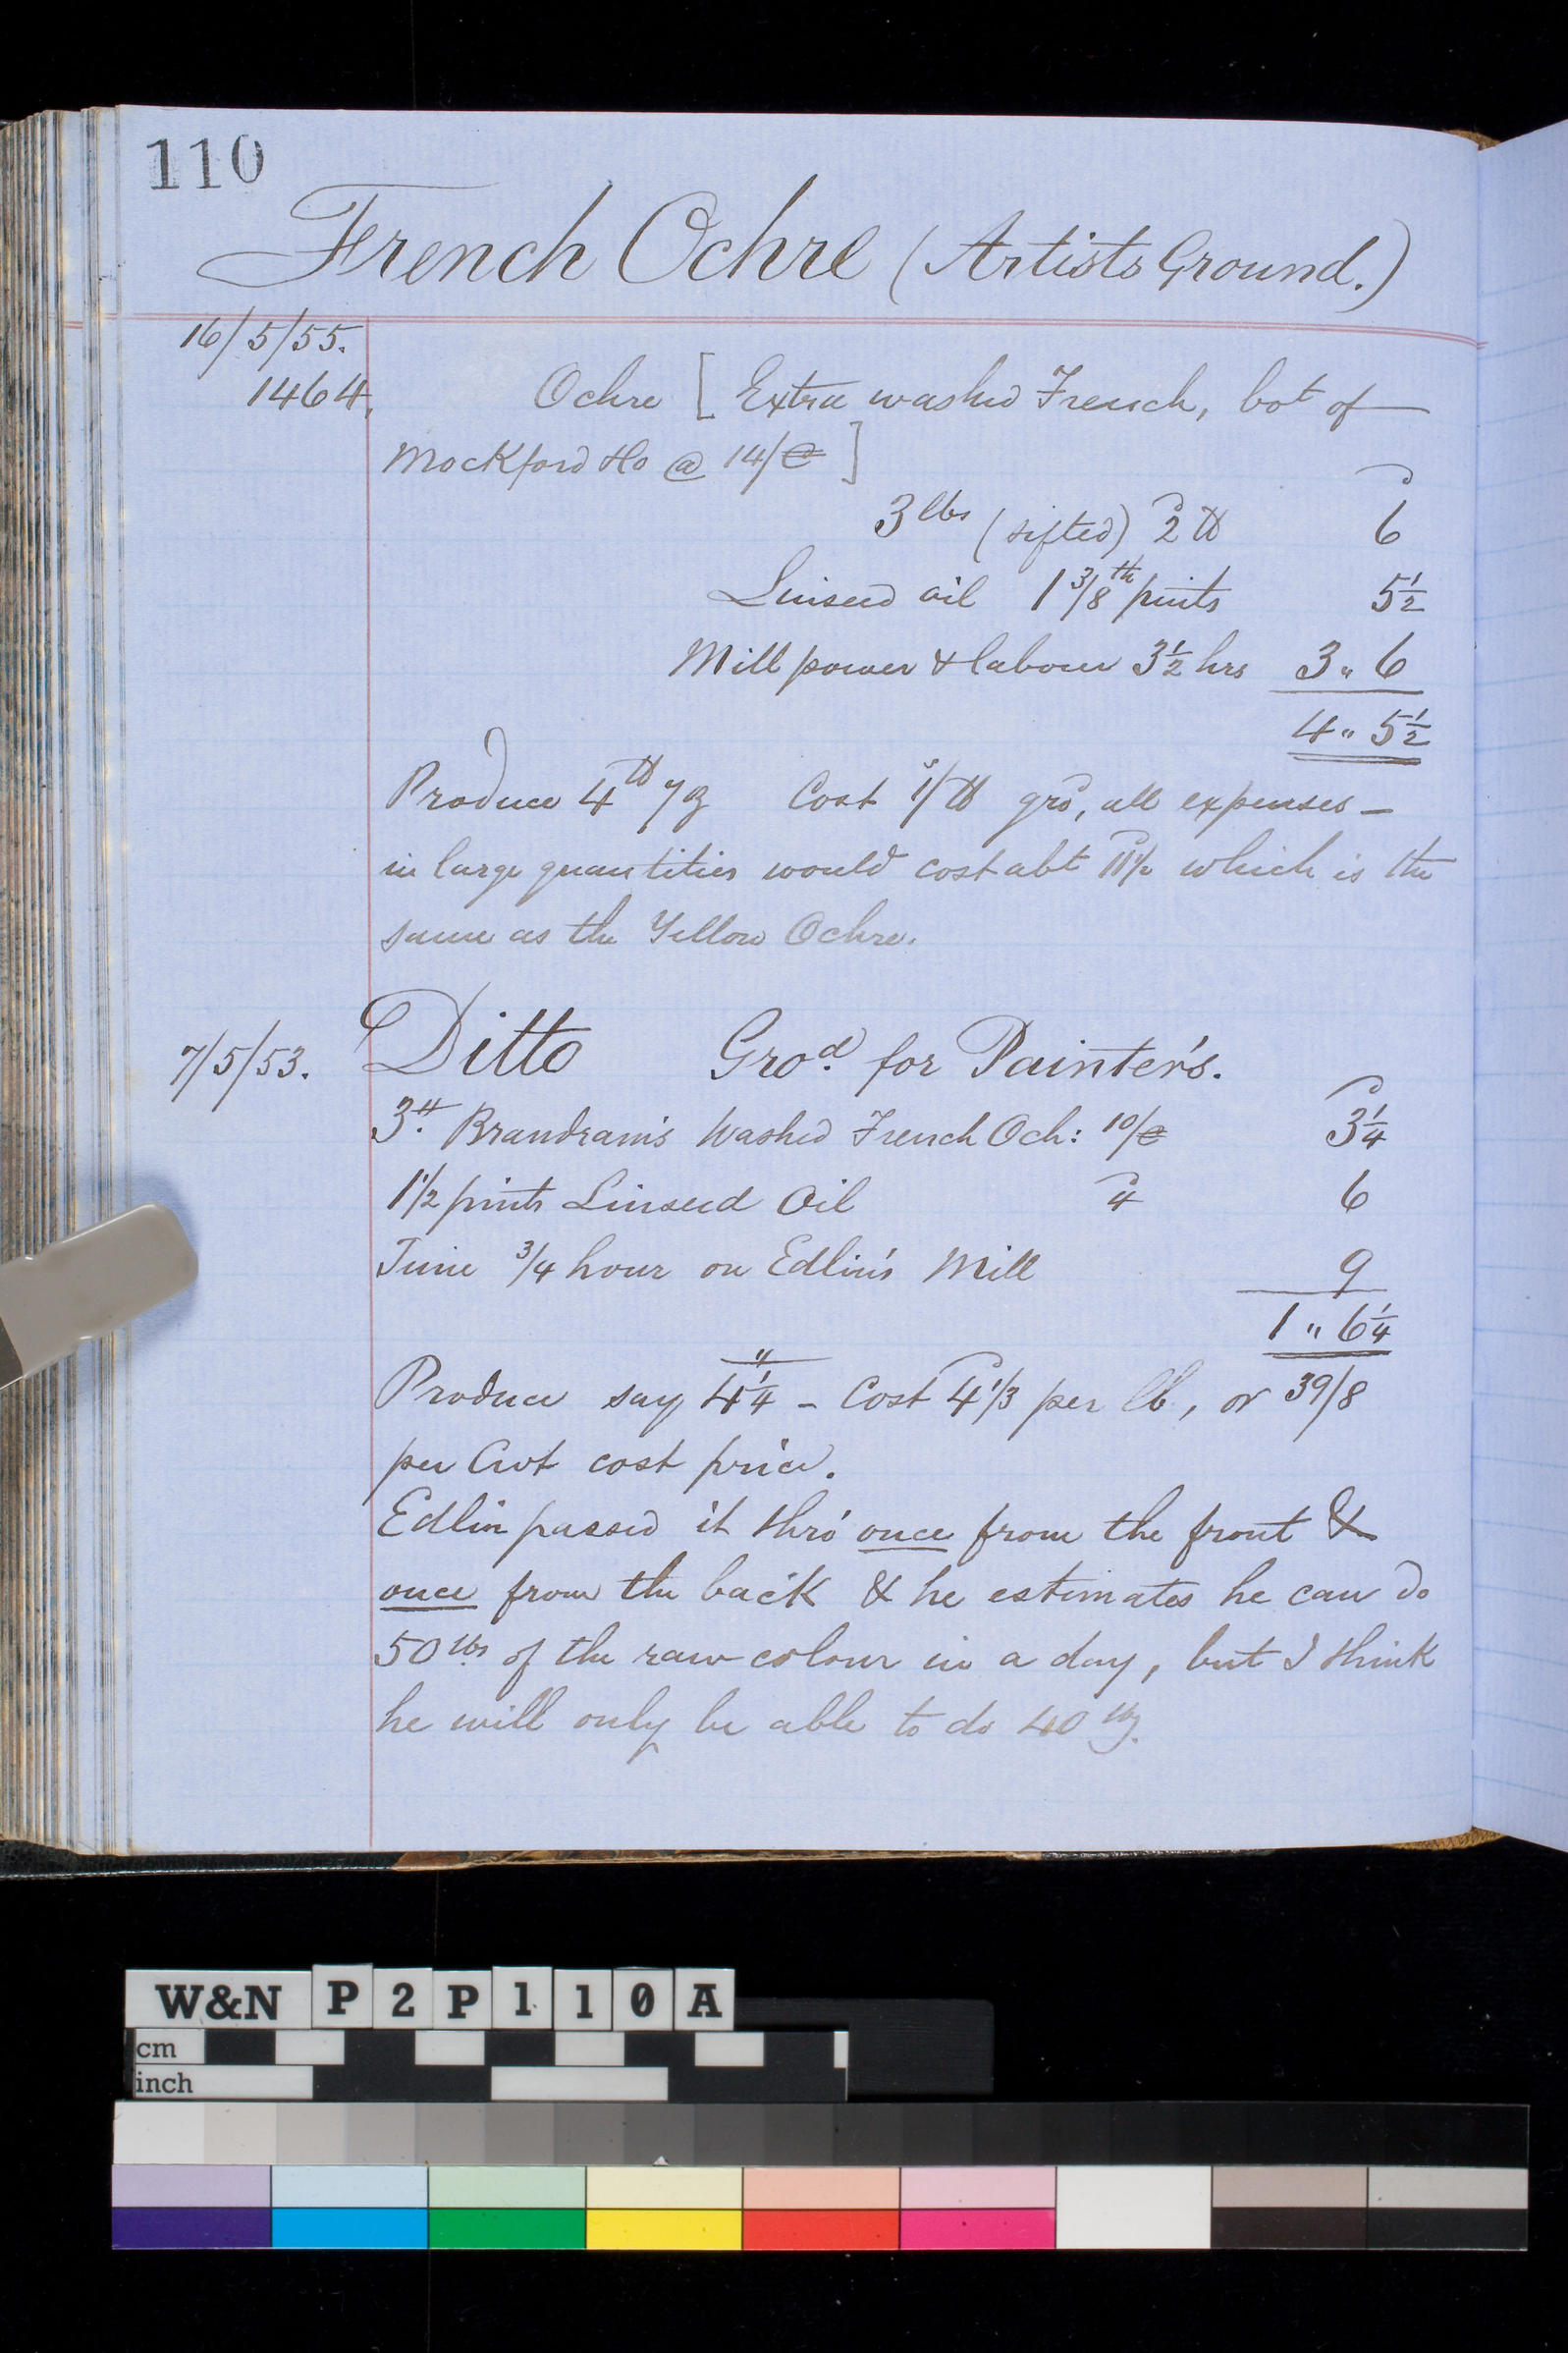 110
French Ochre (Artists Ground.)
16/5/55.
1464.
Ochre [Extra washed French, bot of
Mockford & Co @ 14/C]
3 lbs (sifted) 2 lb 6
Linseed oil 1 3/8th pints 5½
Mill power & labour 3½ hrs 3 " 6
4 " 5½
Produce 4 lb 7 oz Cost 1/lb grd, all expenses —
in large quantities would cost abt 11½ which is the
same as the Yellow Ochre.
7/5/53.
Ditto Grod. for Painter's.
3 lb. Brandram's Washed French Och: 10/C 3¼
1½ pints Linseed Oil 4 6
Time ¾ hour on Edlin's Mill 9
1 " 6¼
Produce say 4¼ - Cost 4⅓ per lb, or 39/8
per Cwt cost price.
Edlin passed it thro' once from the front &
once from the back & he estimates he can do
50 lbs of the raw colour in a day, but I think
he will only be able to do 40 lbs.
W&N P2P110A
cm
inch